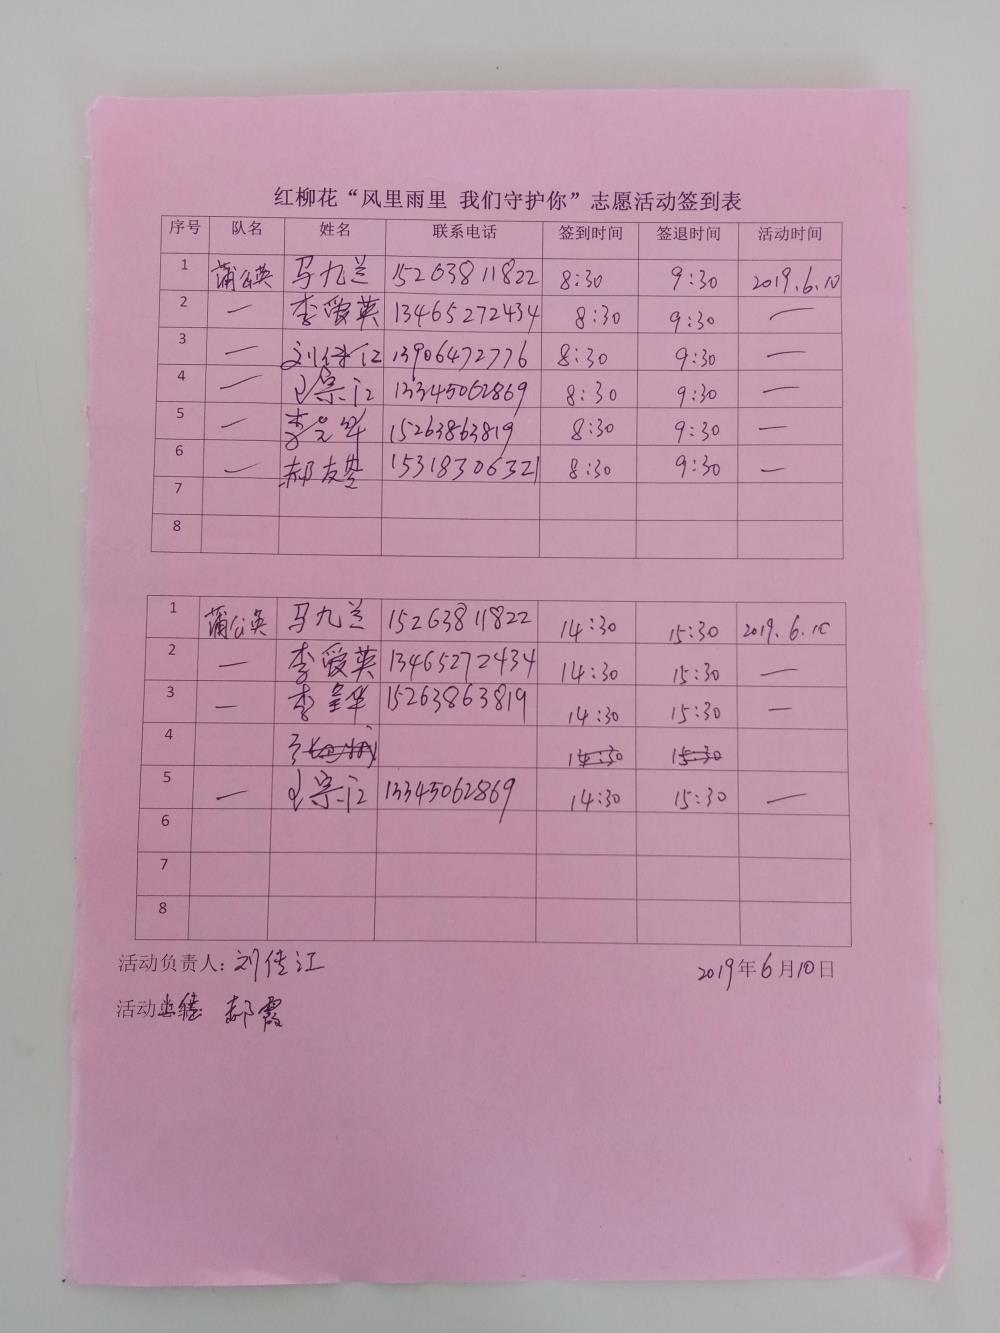 红柳花“风里雨里 我们守护你”志愿活动签到表
序号 队名 姓名 联系电话 签到时间 签退时间 活动时间
1 蒲公英 马九兰 15263811822 8:30 9:30 2019.6.10
2 — 李爱英 13465272434 8:30 9:30 —
3 — 刘佳江 13906472776 8:30 9:30 —
4 — 宗江 13345062869 8:30 9:30 —
5 — 李呈华 15263863819 8:30 9:30 —
6 — 郝友 15318306321 8:30 9:30 —
7
8
1 蒲公英 马九兰 15263811822 14:30 15:30 2019.6.10
2 — 李爱英 13465272434 14:30 15:30 —
3 — 李呈华 15263863819 14:30 15:30 —
4 15:30
5 — 宗江 13345062869 14:30 15:30 —
6
7
8
活动负责人：刘佳江 2019年6月10日
活动 郝霞